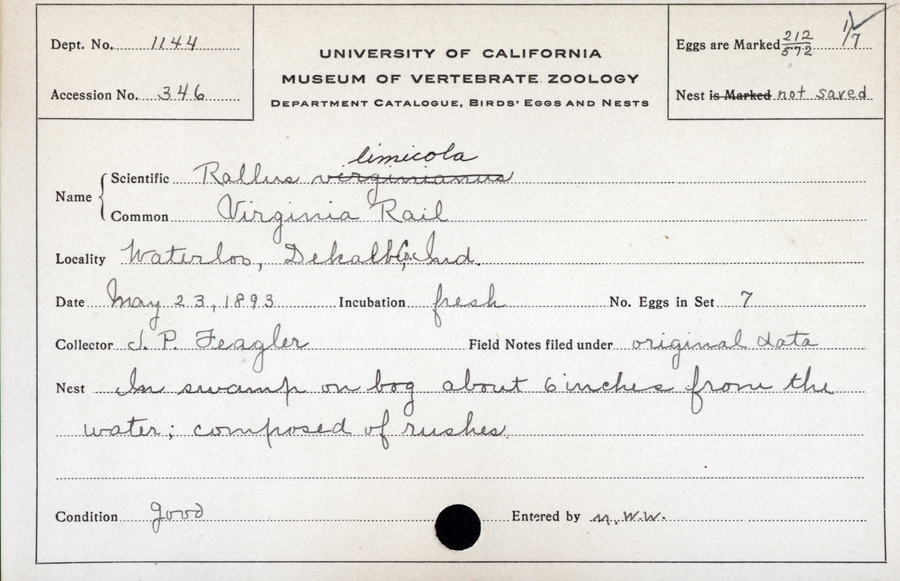 Dept. No. 1144
Accession No. 346
UNIVERSITY OF CALIFORNIA
MUSEUM OF VERTEBRATE ZOOLOGY
DEPARTMENT CATALOGUE, BIRDS' EGGS AND NESTS
Eggs are Marked 212/572 1/7
Nest is Marked not saved
limicola
Name Scientific Rallus virginianus
Common Virginia Rail
Locality Waterloo, Dekalb Co., Ind.
Date May 23, 1893 Incubation fresh No. Eggs in Set 7
Collector J. P. Feagler Field Notes filed under original data
Nest In swamp on bog about 6 inches from the
water; composed of rushes.
Condition good Entered by N.W.W.